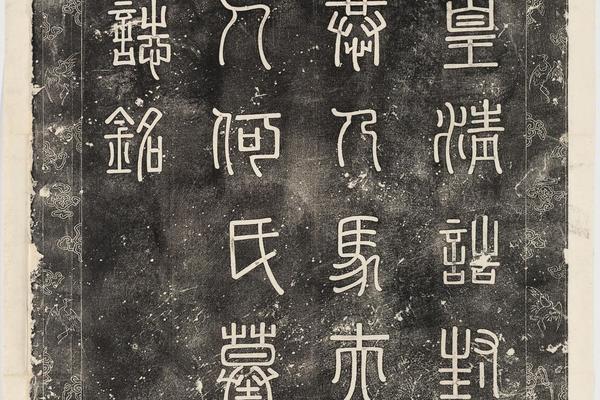 皇清誥封
恭人馬夫
人何氏墓
誌銘